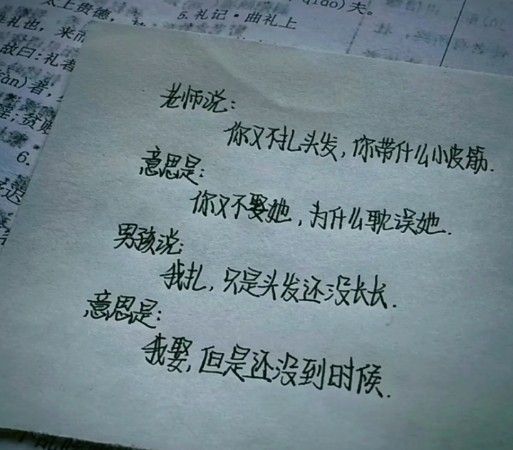 太上贵德,
5.礼记·曲礼上
(qiáo)夫。
故曰:礼者
6.
老师说:
你又不扎头发,你带什么小皮筋.
意思是:
你又不娶她,为什么耽误她.
男孩说:
我扎,只是头发还没长长.
意思是:
我娶,但是还没到时候.